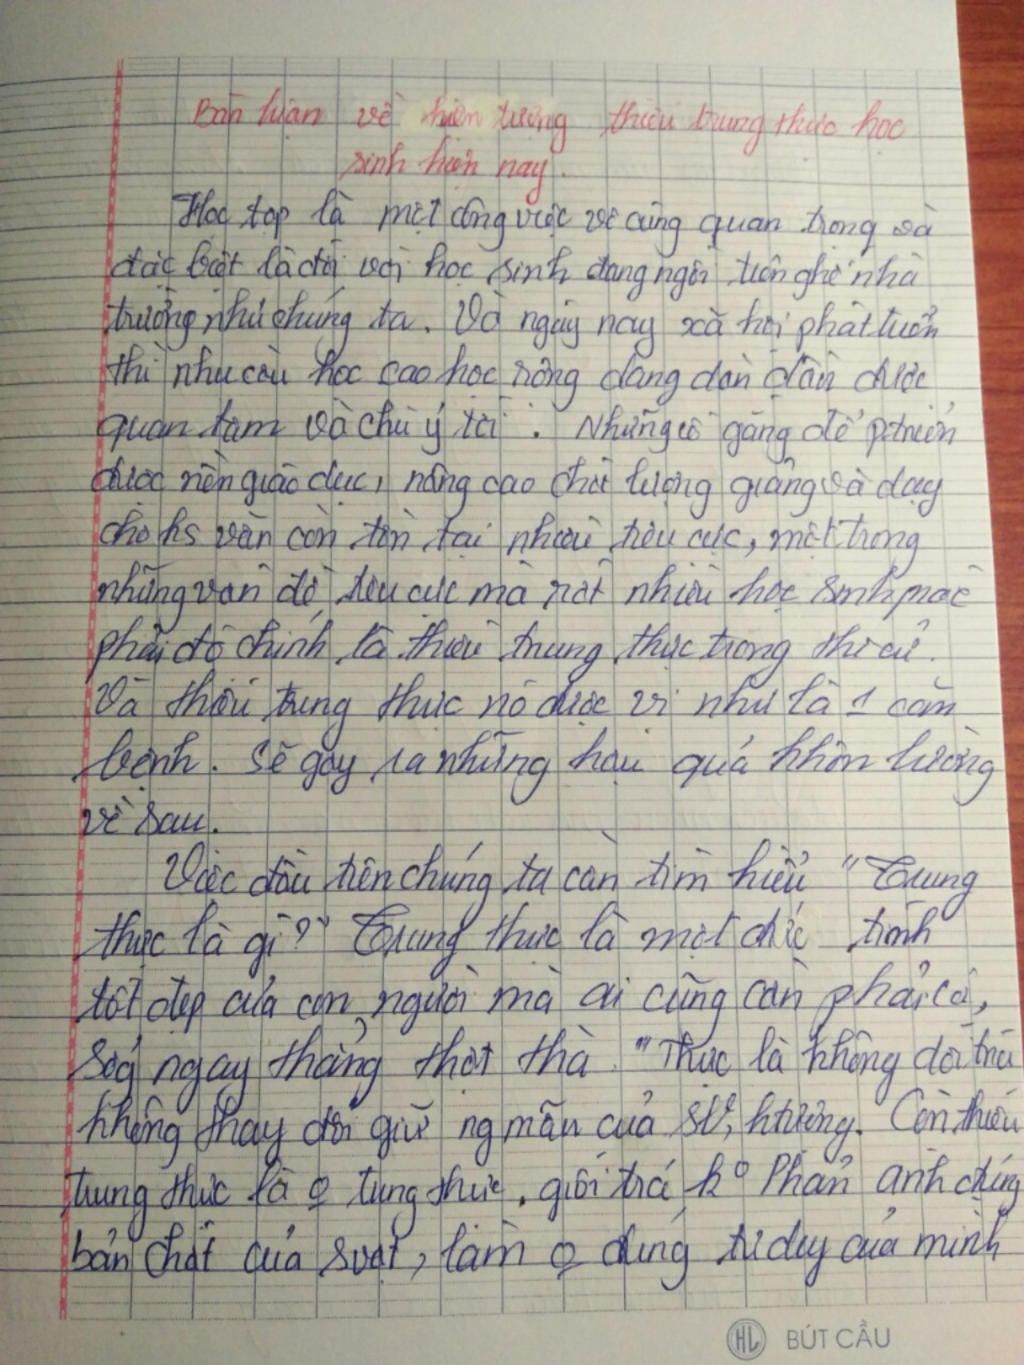 Bàn luận về hiện tượng thiếu trung thực học
sinh hiện nay.
Học tập là một công việc vô cùng quan trọng và
đặc biệt là đối với học sinh đang ngồi trên ghế nhà
trường như chúng ta. Và ngày nay xã hội phát triển
thì nhu cầu học cao học rộng đang dần dần được
quan tâm và chú ý tới. Những cố gắng để ptriển
được nền giáo dục, nâng cao chất lượng giảng và dạy
cho hs vẫn còn tồn tại nhiều tiêu cực, một trong
những vấn đề tiêu cực mà rất nhiều học sinh mắc
phải đó chính là thiếu trung thực trong thi cử.
Và thiếu trung thực nó được ví như là 1 căn
bệnh. Sẽ gây ra những hậu quả khôn lường
về sau.
Việc đầu tiên chúng ta cần tìm hiểu "Trung
thực là gì?" Trung thực là một đức tính
tốt đẹp của con người mà ai cũng cần phải có,
sốg ngay thẳng thật thà. "Thực là không dối trá
không thay đổi giữ ng mẫn của sự, htượng. Còn thiếu
trung thực là o trung thực, giối trá ko Phản ánh đúng
bản chất của sự vật, làm o đúng tư duy của mình
HL BÚT CẦU